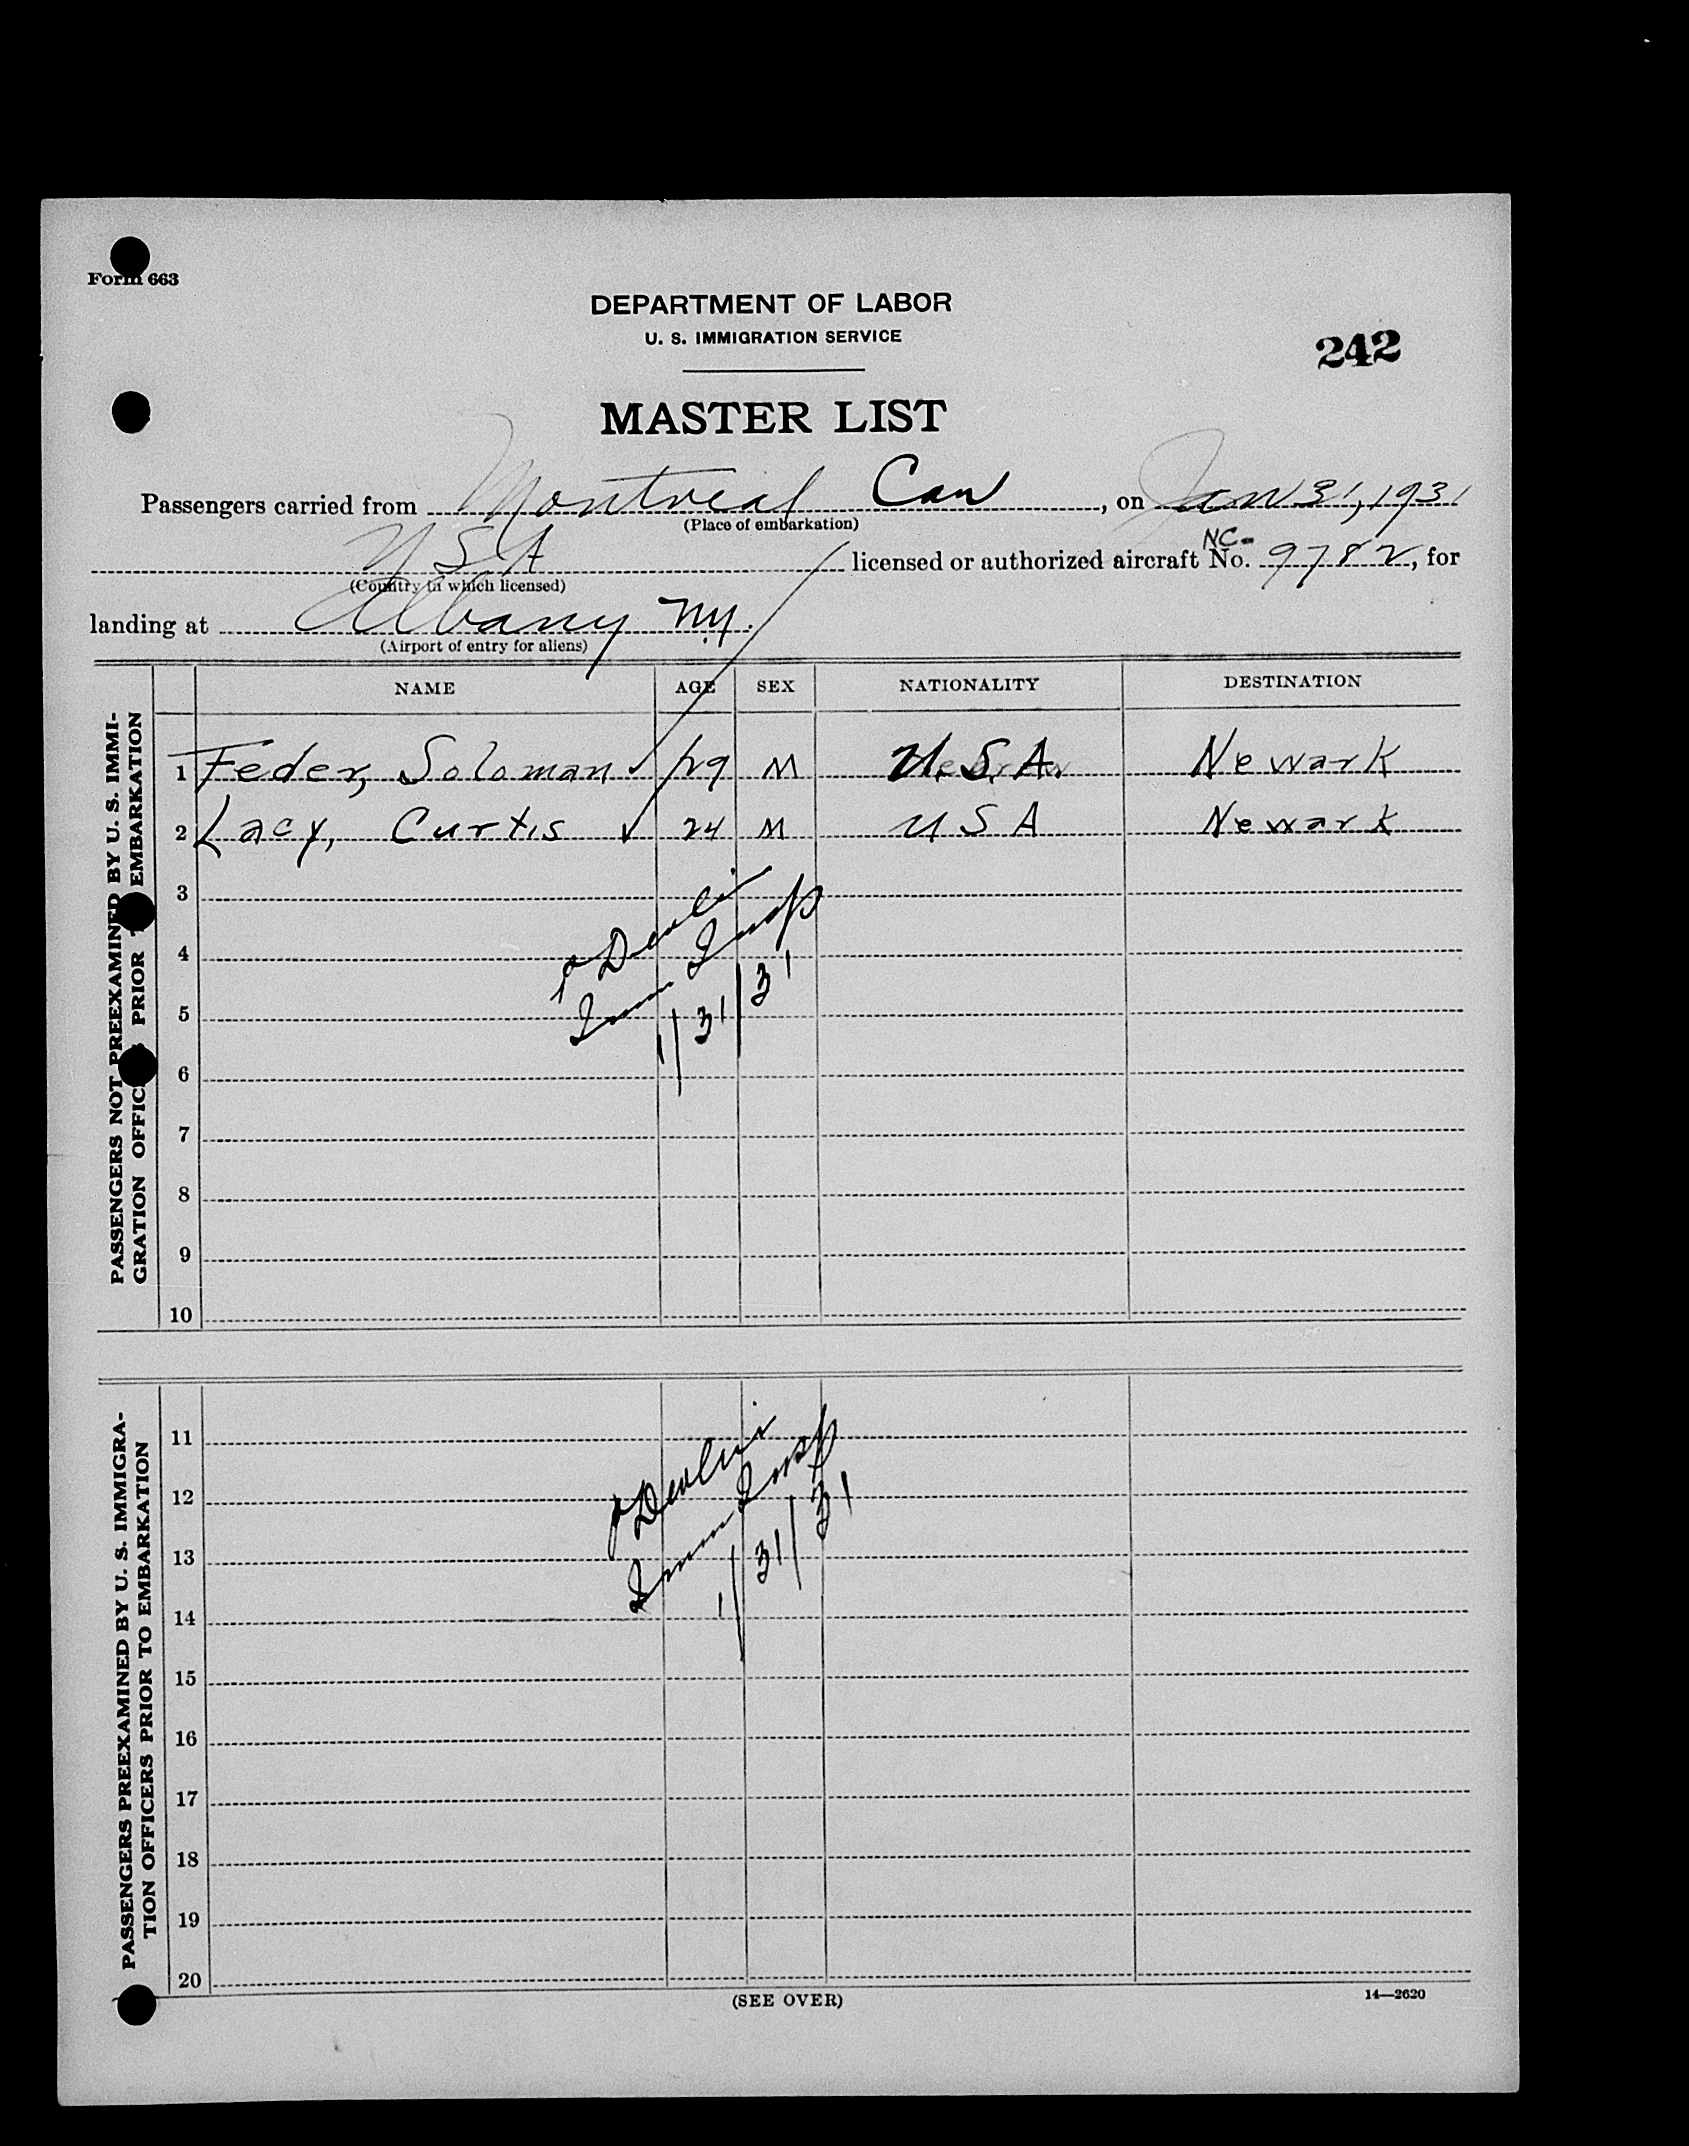 Form 663
DEPARTMENT OF LABOR
U. S. IMMIGRATION SERVICE
242
MASTER LIST
Passengers carried from Montreal Can, on Jan 31, 1931
(Place of embarkation)
U S A licensed or authorized aircraft NC- No. 9782, for
(Country in which licensed)
landing at Albany N.Y.
(Airport of entry for aliens)
NAME AGE SEX NATIONALITY DESTINATION
PASSENGERS NOT PREEXAMINED BY U. S. IMMI-
GRATION OFFIC PRIOR EMBARKATION
1 Feder, Soloman ✓ 29 M U.S.A. Newark
2 Lacy, Curtis ✓ 24 M U S A Newark
3
4
5
6
7
8
9
10
Devlin
Imm Insp
1/31/31
PASSENGERS PREEXAMINED BY U. S. IMMIGRA-
TION OFFICERS PRIOR TO EMBARKATION
11
12
13
14
15
16
17
18
19
20
Devlin
Imm Insp
1/31/31
(SEE OVER)
14—2620